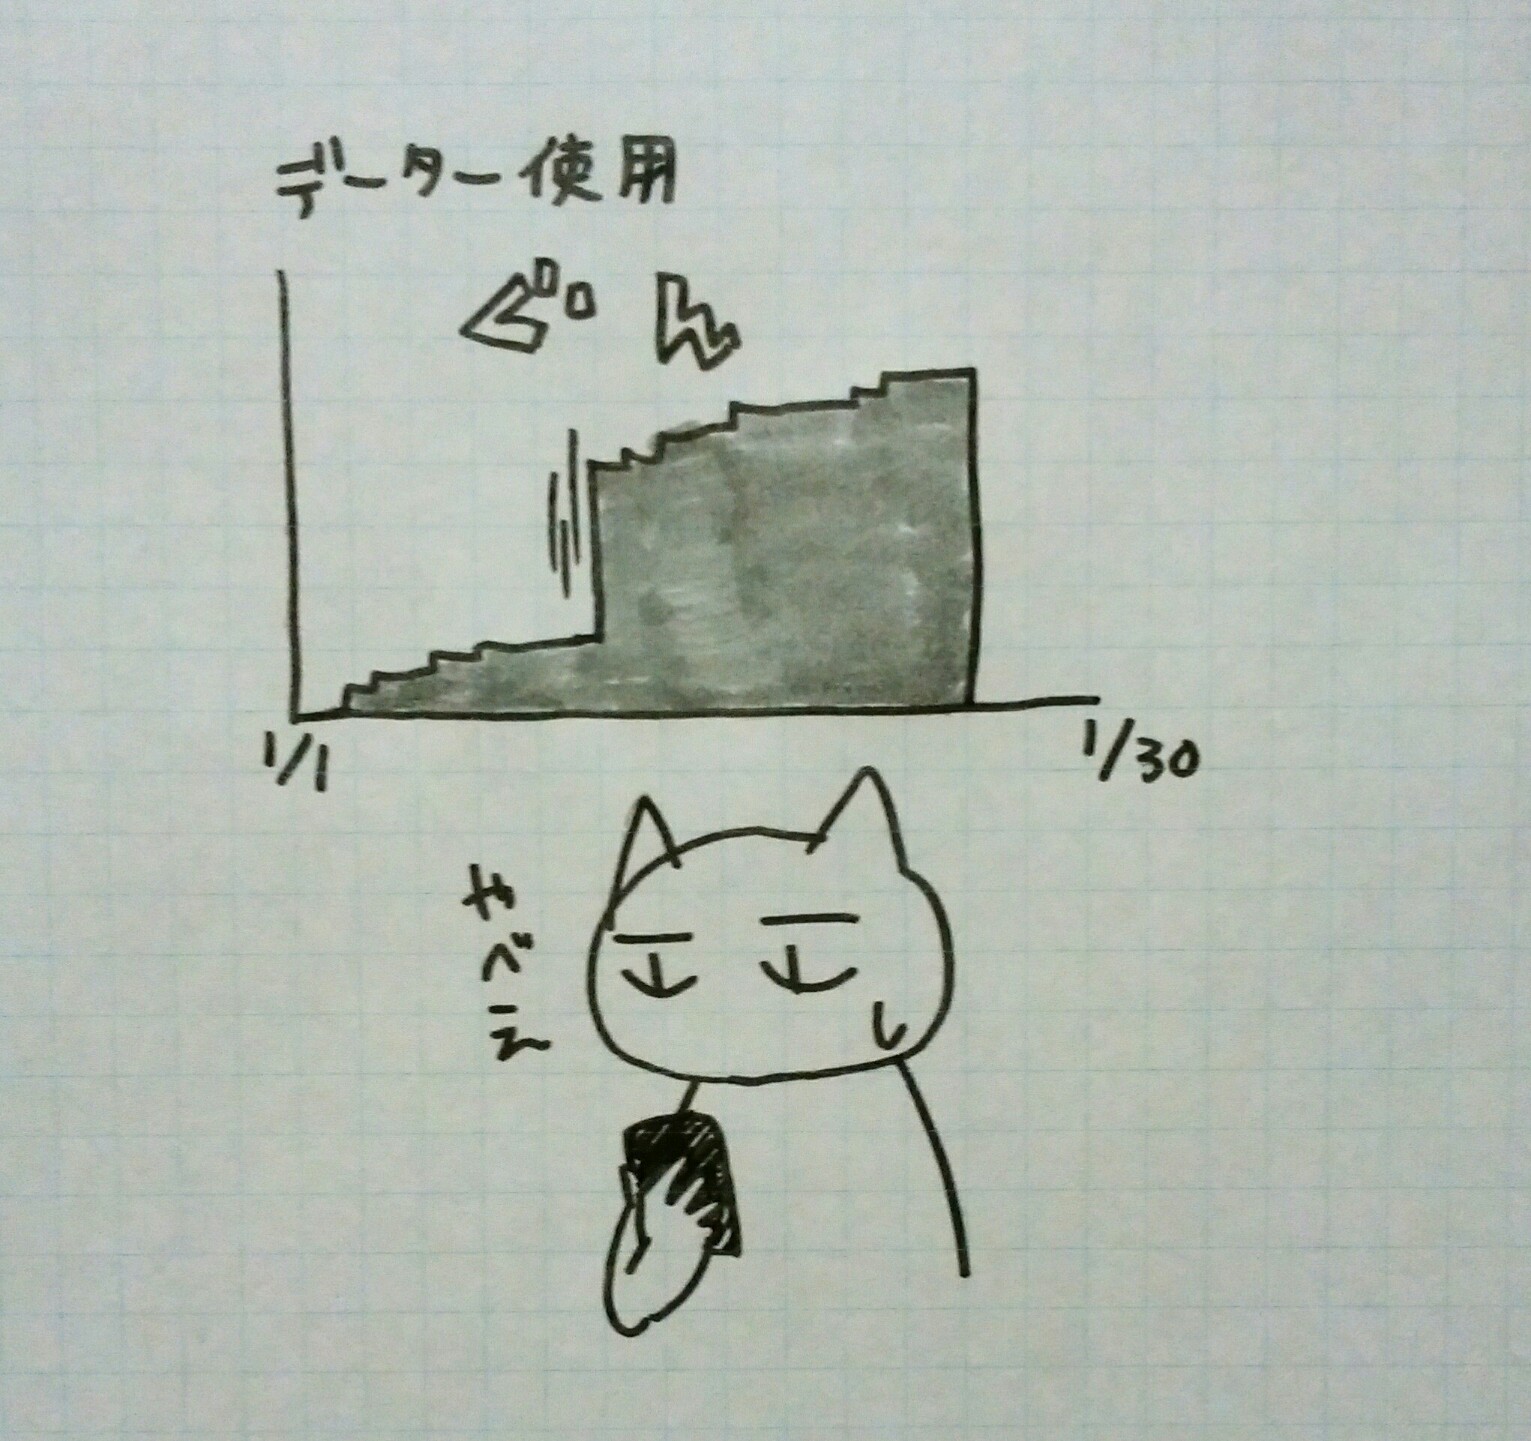 データー使用
ぐん
1/1
1/30
やべえ